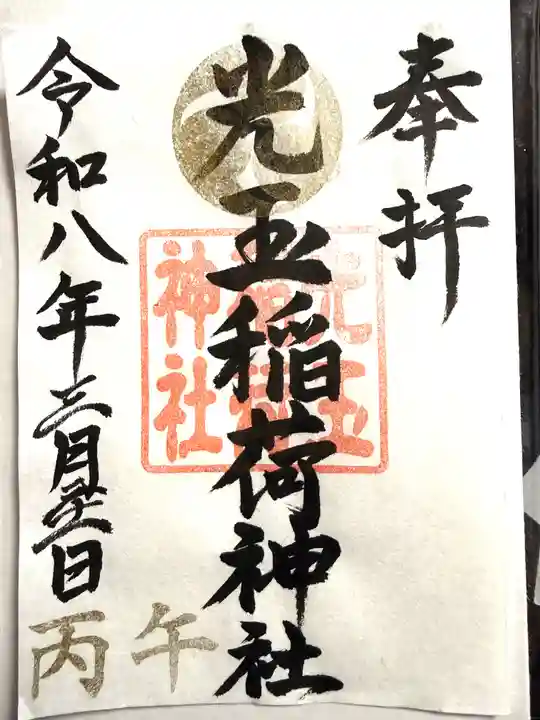 奉拝
光玉稲荷神社
光玉稲荷神社
令和八年三月
日
丙午